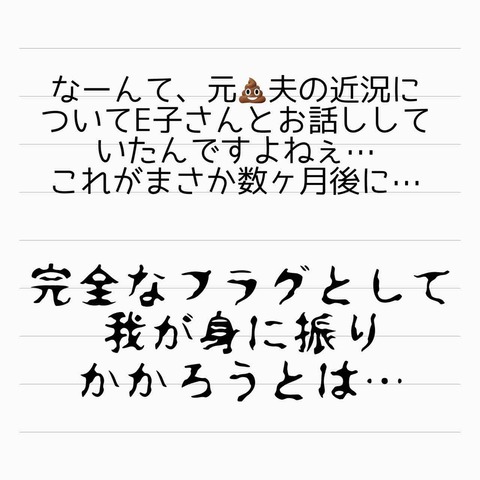 なーんて、元💩夫の近況に
ついてE子さんとお話しして
いたんですよねぇ…
これがまさか数ヶ月後に…
完全なフラグとして
我が身に振り
かかろうとは…